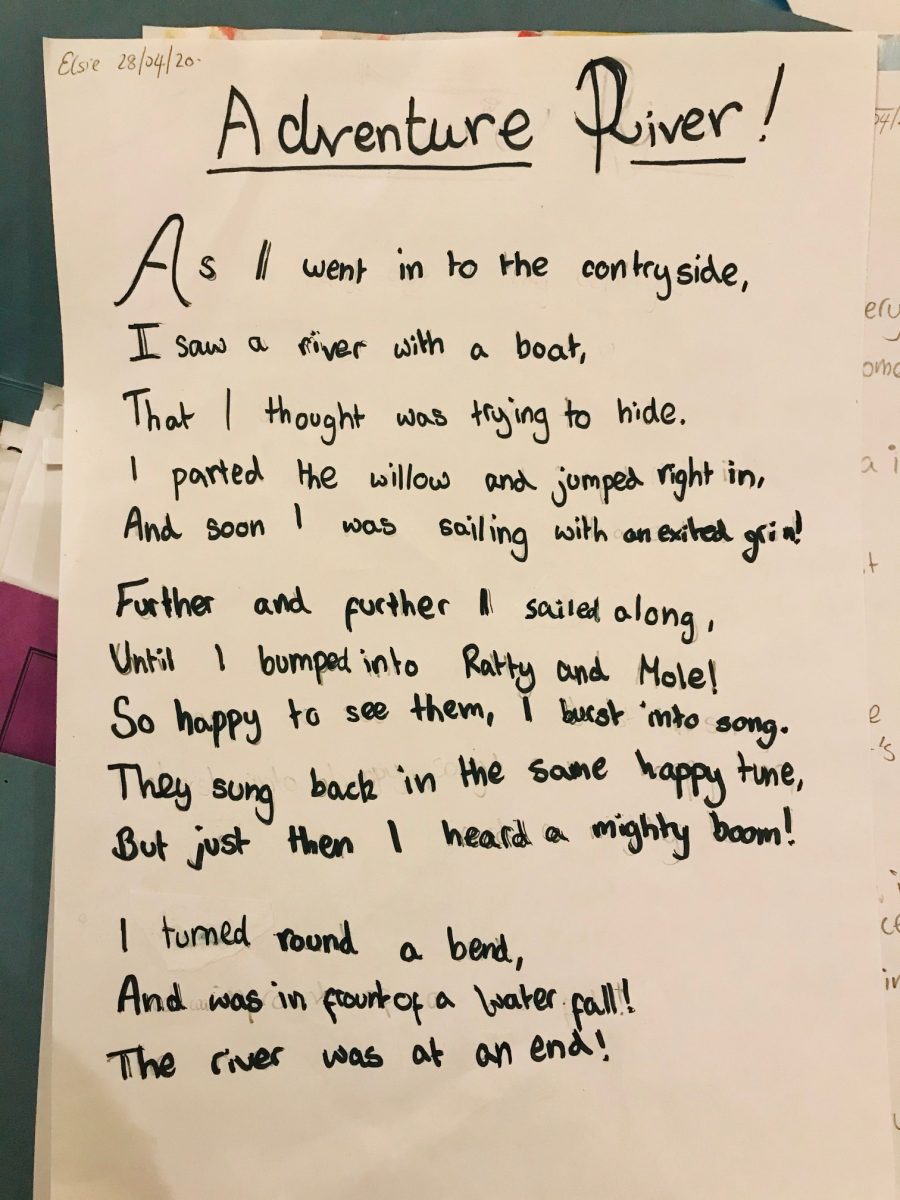 Elsie 28/04/20.
Adventure River!
As I went in to the contryside,
I saw a river with a boat,
That I thought was trying to hide.
I parted the willow and jumped right in,
And soon I was sailing with an exited grin!
Further and further I sailed along,
Until I bumped into Ratty and Mole!
So happy to see them, I burst into song.
They sung back in the same happy tune,
But just then I heard a mighty boom!
I turned round a bend,
And was in frount of a water fall!
The river was at an end!